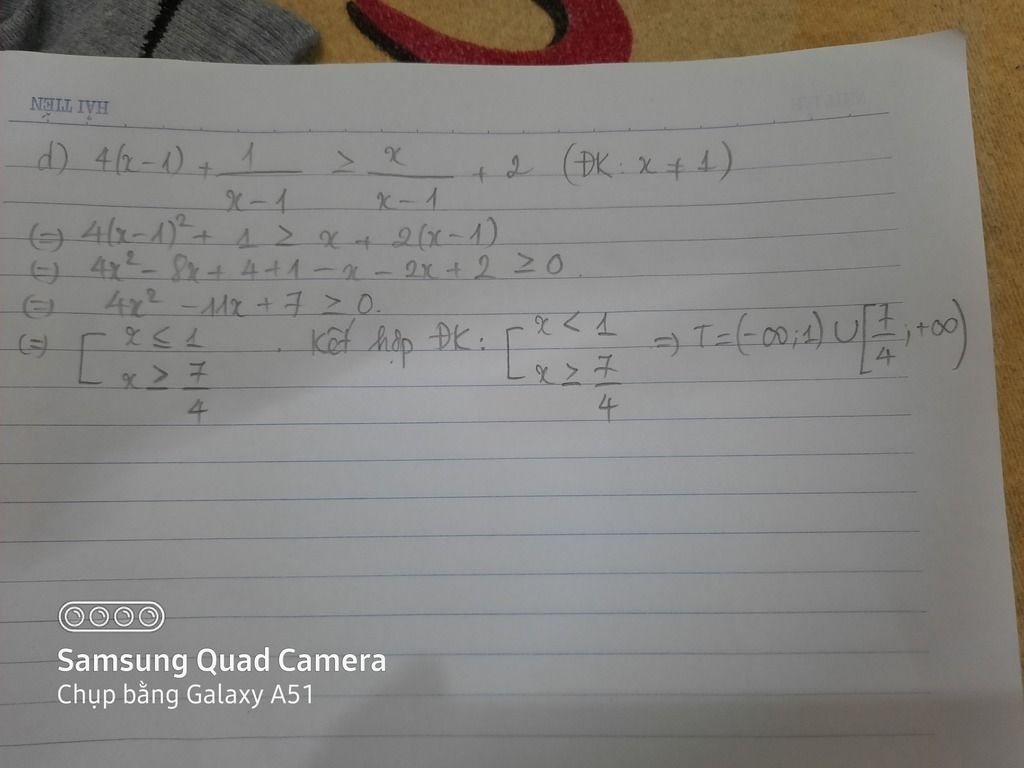 HẢI TIẾN
d) 4(x-1) + 1/(x-1) ≥ x/(x-1) + 2 (ĐK: x ≠ 1)
(=) 4(x-1)² + 1 ≥ x + 2(x-1)
(=) 4x² - 8x + 4 + 1 - x - 2x + 2 ≥ 0.
(=) 4x² - 11x + 7 ≥ 0.
(=) [ x ≤ 1 ; x ≥ 7/4 . Kết hợp ĐK: [ x < 1 ; x ≥ 7/4 => T = (-∞; 1) ∪ [7/4; +∞)
Samsung Quad Camera
Chụp bằng Galaxy A51